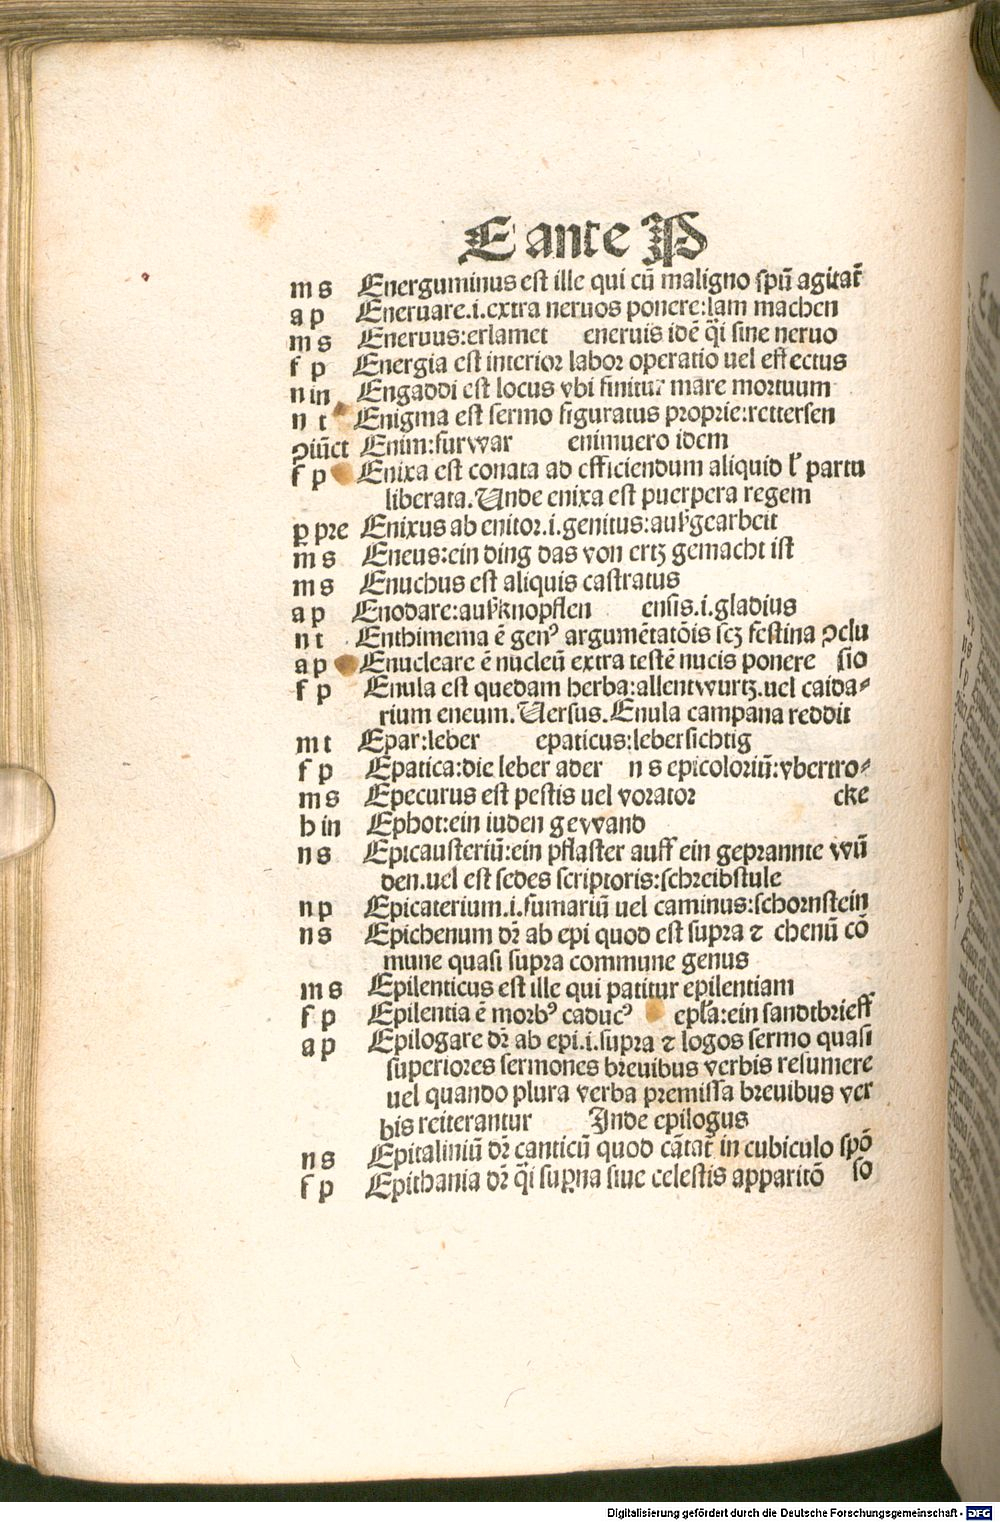 E ante P
m s Energuminus est ille qui cū maligno spū agitat̄
a p Eneruare.i.extra neruos ponere:lam machen
m s Eneruus:erlamet eneruis idē q̄i sine neruo
f p Energia est interior labor operatio uel effectus
n in Engaddi est locus vbi finitur mare mortuum
n t Enigma est sermo figuratus proprie:rettersen
ↄiūct Enim:furwar enimuero idem
f p Enixa est conata ad efficiendum aliquid l̓ partu
liberata.Unde enixa est puerpera regem
p̱ pre Enixus ab enitor.i.genitus:außgearbeit
m s Eneus:ein ding das von ertz gemacht ist
m s Enuchus est aliquis castratus
a p Enodare:außknopflen ensis.i.gladius
n t Enthimema ē genꝰ argumētatōis scꝫ festina ↄclu
a p Enucleare ē nucleū extra testē nucis ponere sio
f p Enula est quedam herba:allentwurtz.uel calda⸗
rium eneum.Uersus.Enula campana reddit
m t Epar:leber epaticus:lebersichtig
f p Epatica:die leber ader n s epicoloriū:vbertro⸗
m s Epecurus est pestis uel vorator cke
h in Ephot:ein iuden gewand
n s Epicausteriū:ein pflaster auff ein geprannte wū
den.uel est sedes scriptoris:schreibstule
n p Epicaterium.i.fumariū uel caminus:schornstein
n s Epichenum dr̄ ab epi quod est supra ⁊ chenū cō
mune quasi supra commune genus
m s Epilenticus est ille qui patitur epilentiam
f p Epilentia ē morbꝰ caducꝰ epl̄a:ein sandtbrieff
a p Epilogare dr̄ ab epi.i.supra ⁊ logos sermo quasi
superiores sermones breuibus verbis resumere
uel quando plura verba premissa breuibus ver
bis reiterantur Inde epilogus
n s Epitaliniū dr̄ canticū quod cātat̄ in cubiculo spō
f p Epithania dr̄ q̄i sup̱na siue celestis apparitō so
Digitalisierung gefördert durch die Deutsche Forschungsgemeinschaft - DFG